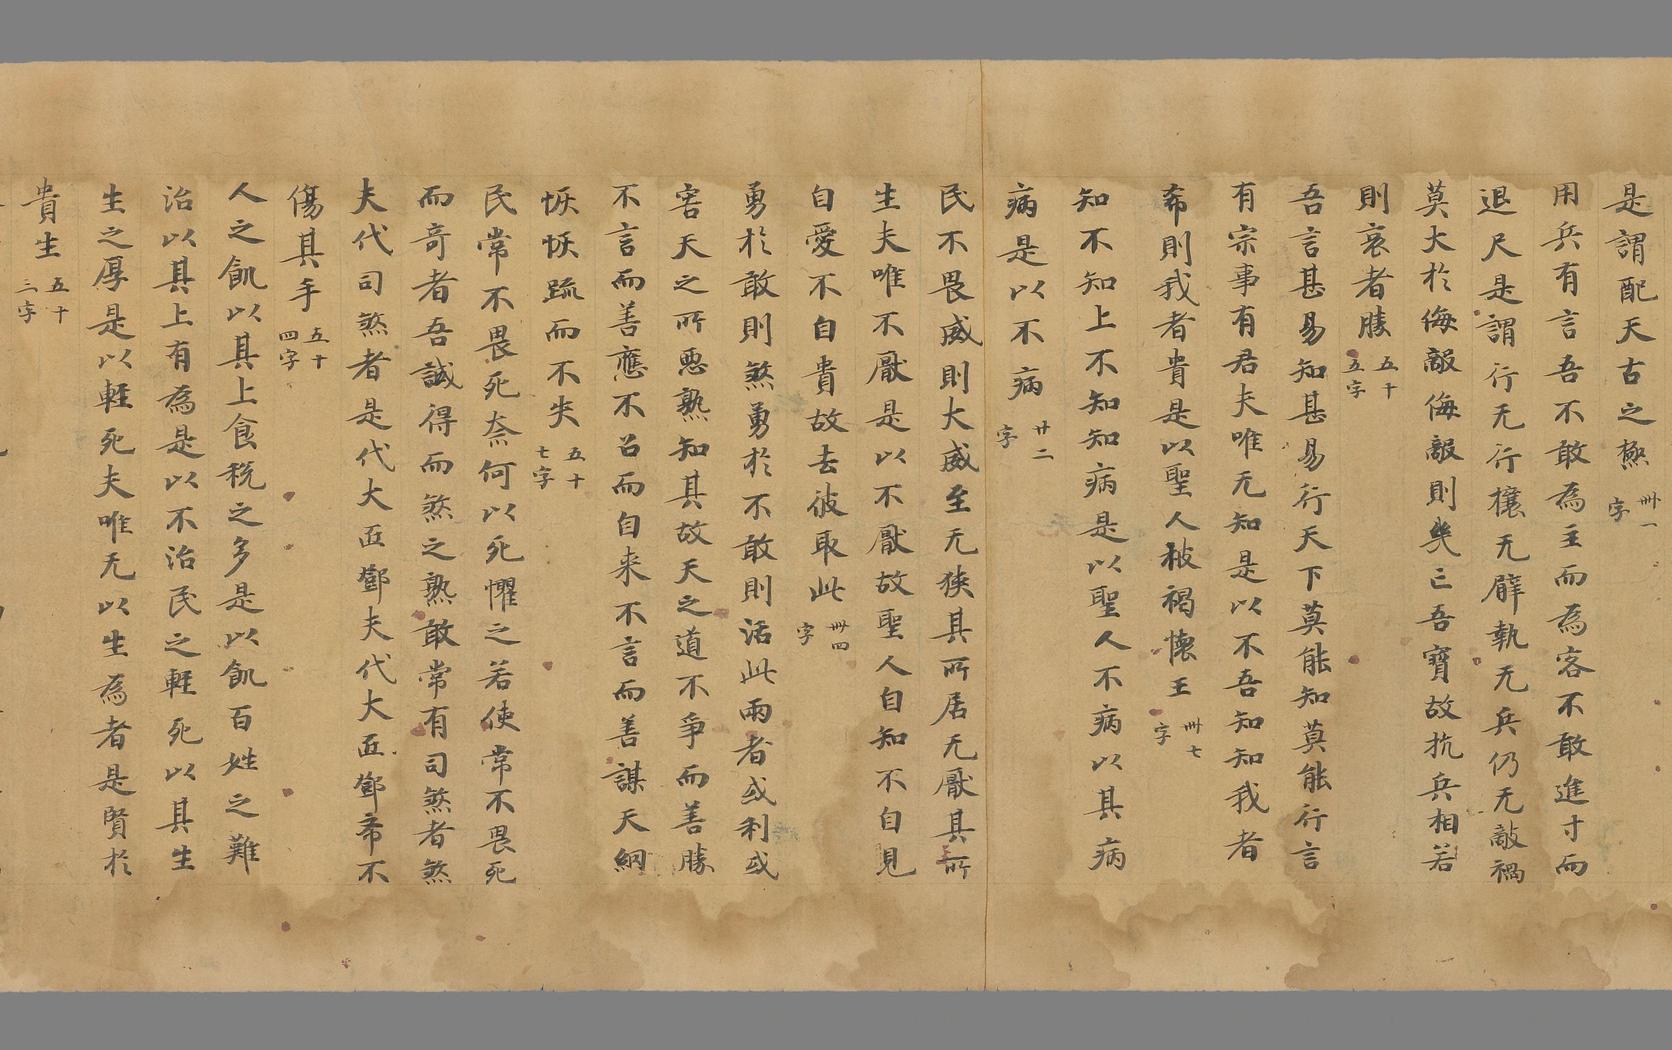 是謂配天古之極 卌一字
用兵有言吾不敢為主而為客不敢進寸而
退尺是謂行无行攘无臂執无兵仍无敵禍
莫大於侮敵侮敵則幾亡吾寶故抗兵相若
則哀者勝 五十五字
吾言甚易知甚易行天下莫能知莫能行言
有宗事有君夫唯无知是以不吾知知我者
希則我者貴是以聖人被褐懷玉 卌七字
知不知上不知知病是以聖人不病以其病
病是以不病 廿二字
民不畏威則大威至无狹其所居无厭其所
生夫唯不厭是以不厭故聖人自知不自見
自愛不自貴故去彼取此 卌四字
勇於敢則煞勇於不敢則活此兩者或利或
害天之所惡熟知其故天之道不爭而善勝
不言而善應不召而自来不言而善謀天網
恢恢疏而不失 五十七字
民常不畏死奈何以死懼之若使常不畏死
而奇者吾誠得而煞之熟敢常有司煞者煞
夫代司煞者是代大匠斵夫代大匠斵希不
傷其手 五十四字
人之飢以其上食稅之多是以飢百姓之難
治以其上有為是以不治民之輕死以其生
生之厚是以輕死夫唯无以生為者是賢於
貴生 五十三字